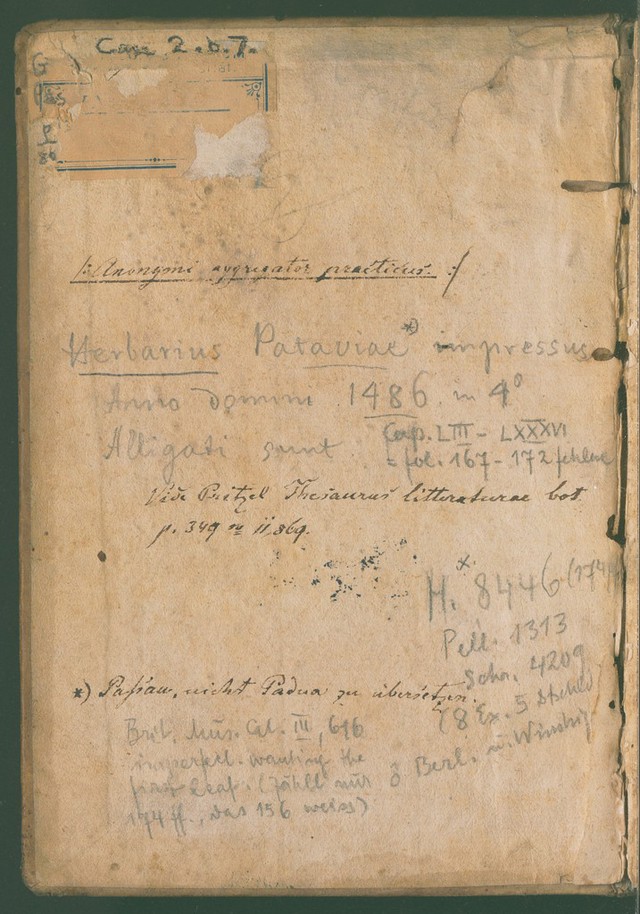 Cap 2.b.7.
/: Anonymi aggregator practicus. :/
Herbarius Pataviae *) impressus
Anno domini 1486. in 4°
Alligati sunt
Cap. LIII - LXXXVI
= fol. 167 - 172 fehlen
Vide Pritzel Thesaurus litteraturae bot
p. 349 n° 11,869.
H. * 8446 (174
Pell. 1313
Schr. 4209
(8 Ex. 5 Dtschld
Berl. u.
*) Passau, nicht Padua zu übersetzen.
Brit. Mus. Cat. III, 616
imperfect. wanting the
first leaf. (zählt nur
174 ff., das 156 weiss)